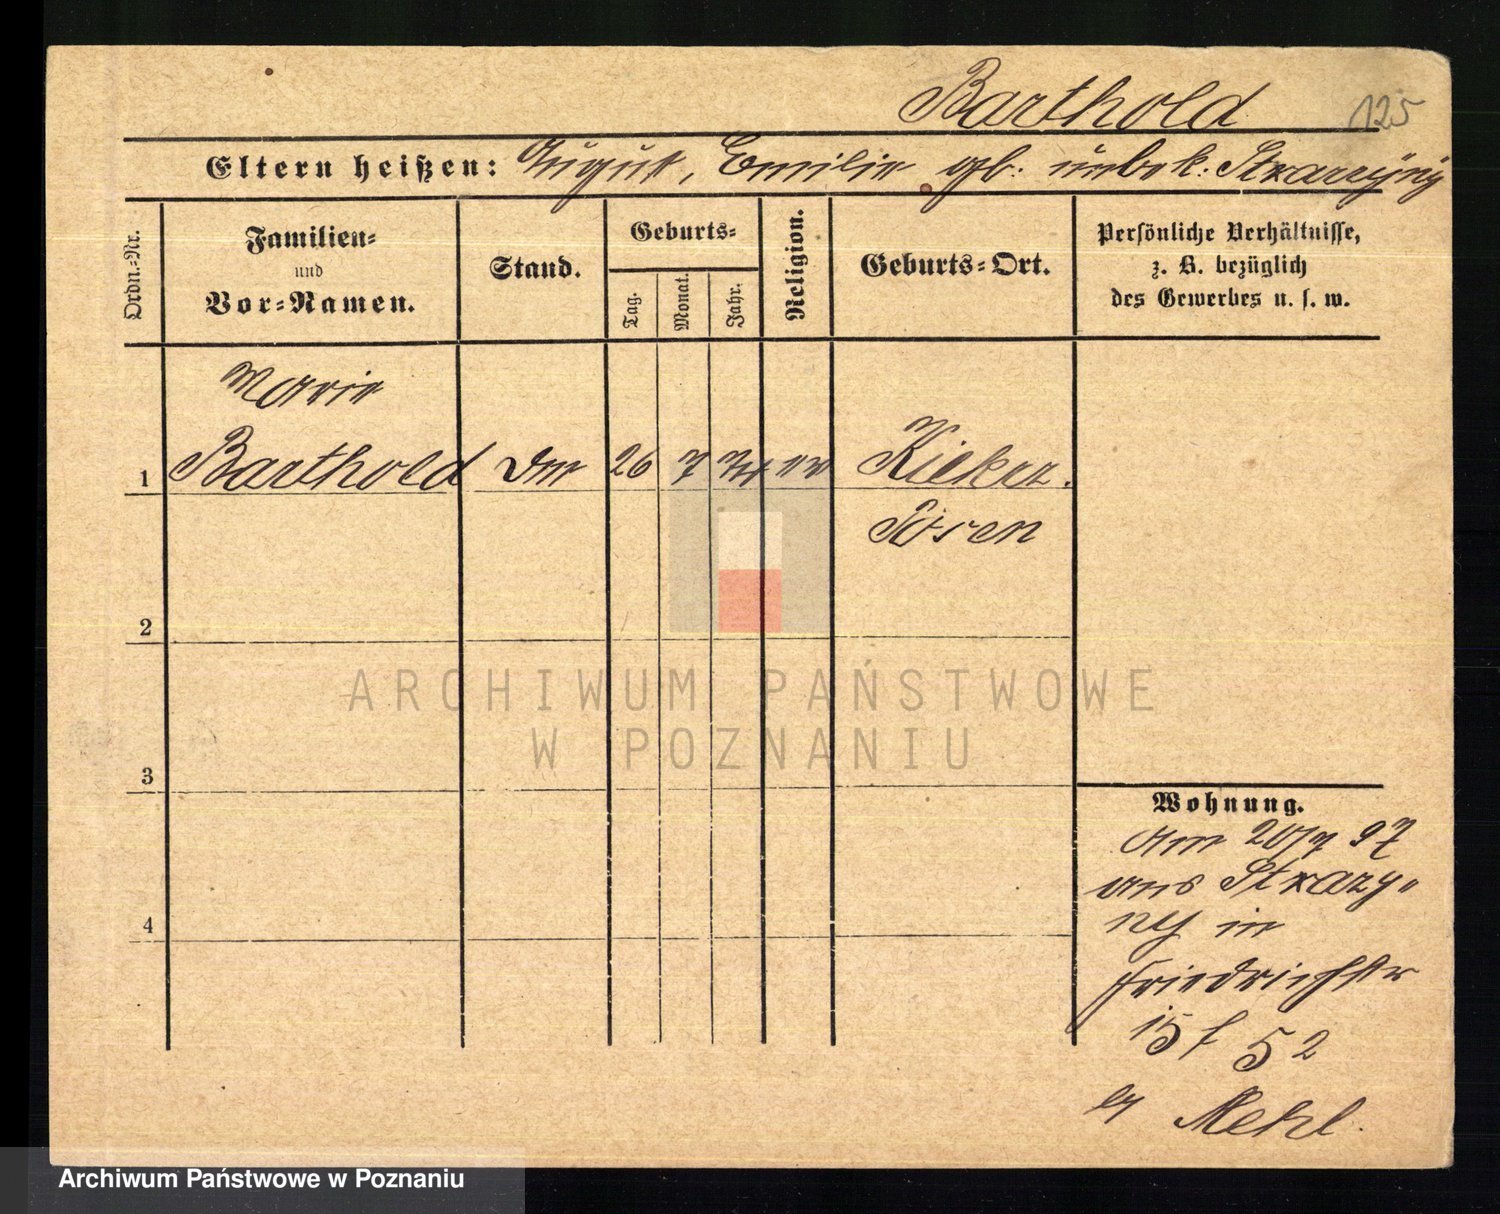 Barthold
125
Eltern heißen: August, Emilie gb. unbek:
Ordn.-Nr.
Familien-
und
Vor-Namen.
Stand.
Geburts-
Tag.
Monat.
Jahr.
Religion.
Geburts-Ort.
Persönliche Verhältnisse,
z. B. bezüglich
des Gewerbes u. s. w.
Marie
1 Barthold 26 7 ev Kiekrz.
Posen
2
3
4
Wohnung.
Am 20/7 97
aus Strzazy-
ny in
Friedrichstr
15 f 52
by Mehl.
ARCHIWUM PAŃSTWOWE
W POZNANIU
Archiwum Państwowe w Poznaniu